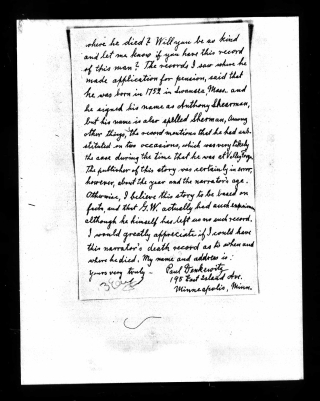 where he died? Will you be so kind
and let me know if you have this record
of this man? The records I saw where he
made application for pension, said that
he was born in 1752 in Swansea Mass. and
he signed his name as Anthony Shearman,
but his name is also spelled Sherman, among
other things, the record mentions that he had sub-
stituted on two occasions, which was very likely
the case during the time that he was at Valley Forge.
The publisher of this story was certainly in error,
however, about the year and the narrator's age.
Otherwise, I believe this story to be based on
fact, and that G.W. actually had such
although he himself has left us no such record.
I would greatly appreciate if I could have
this narrator's death record as to when and
where he died. My name and address is:
yours very truly - Paul Denkewitz
195 East Island Ave.
Minneapolis, Minn.